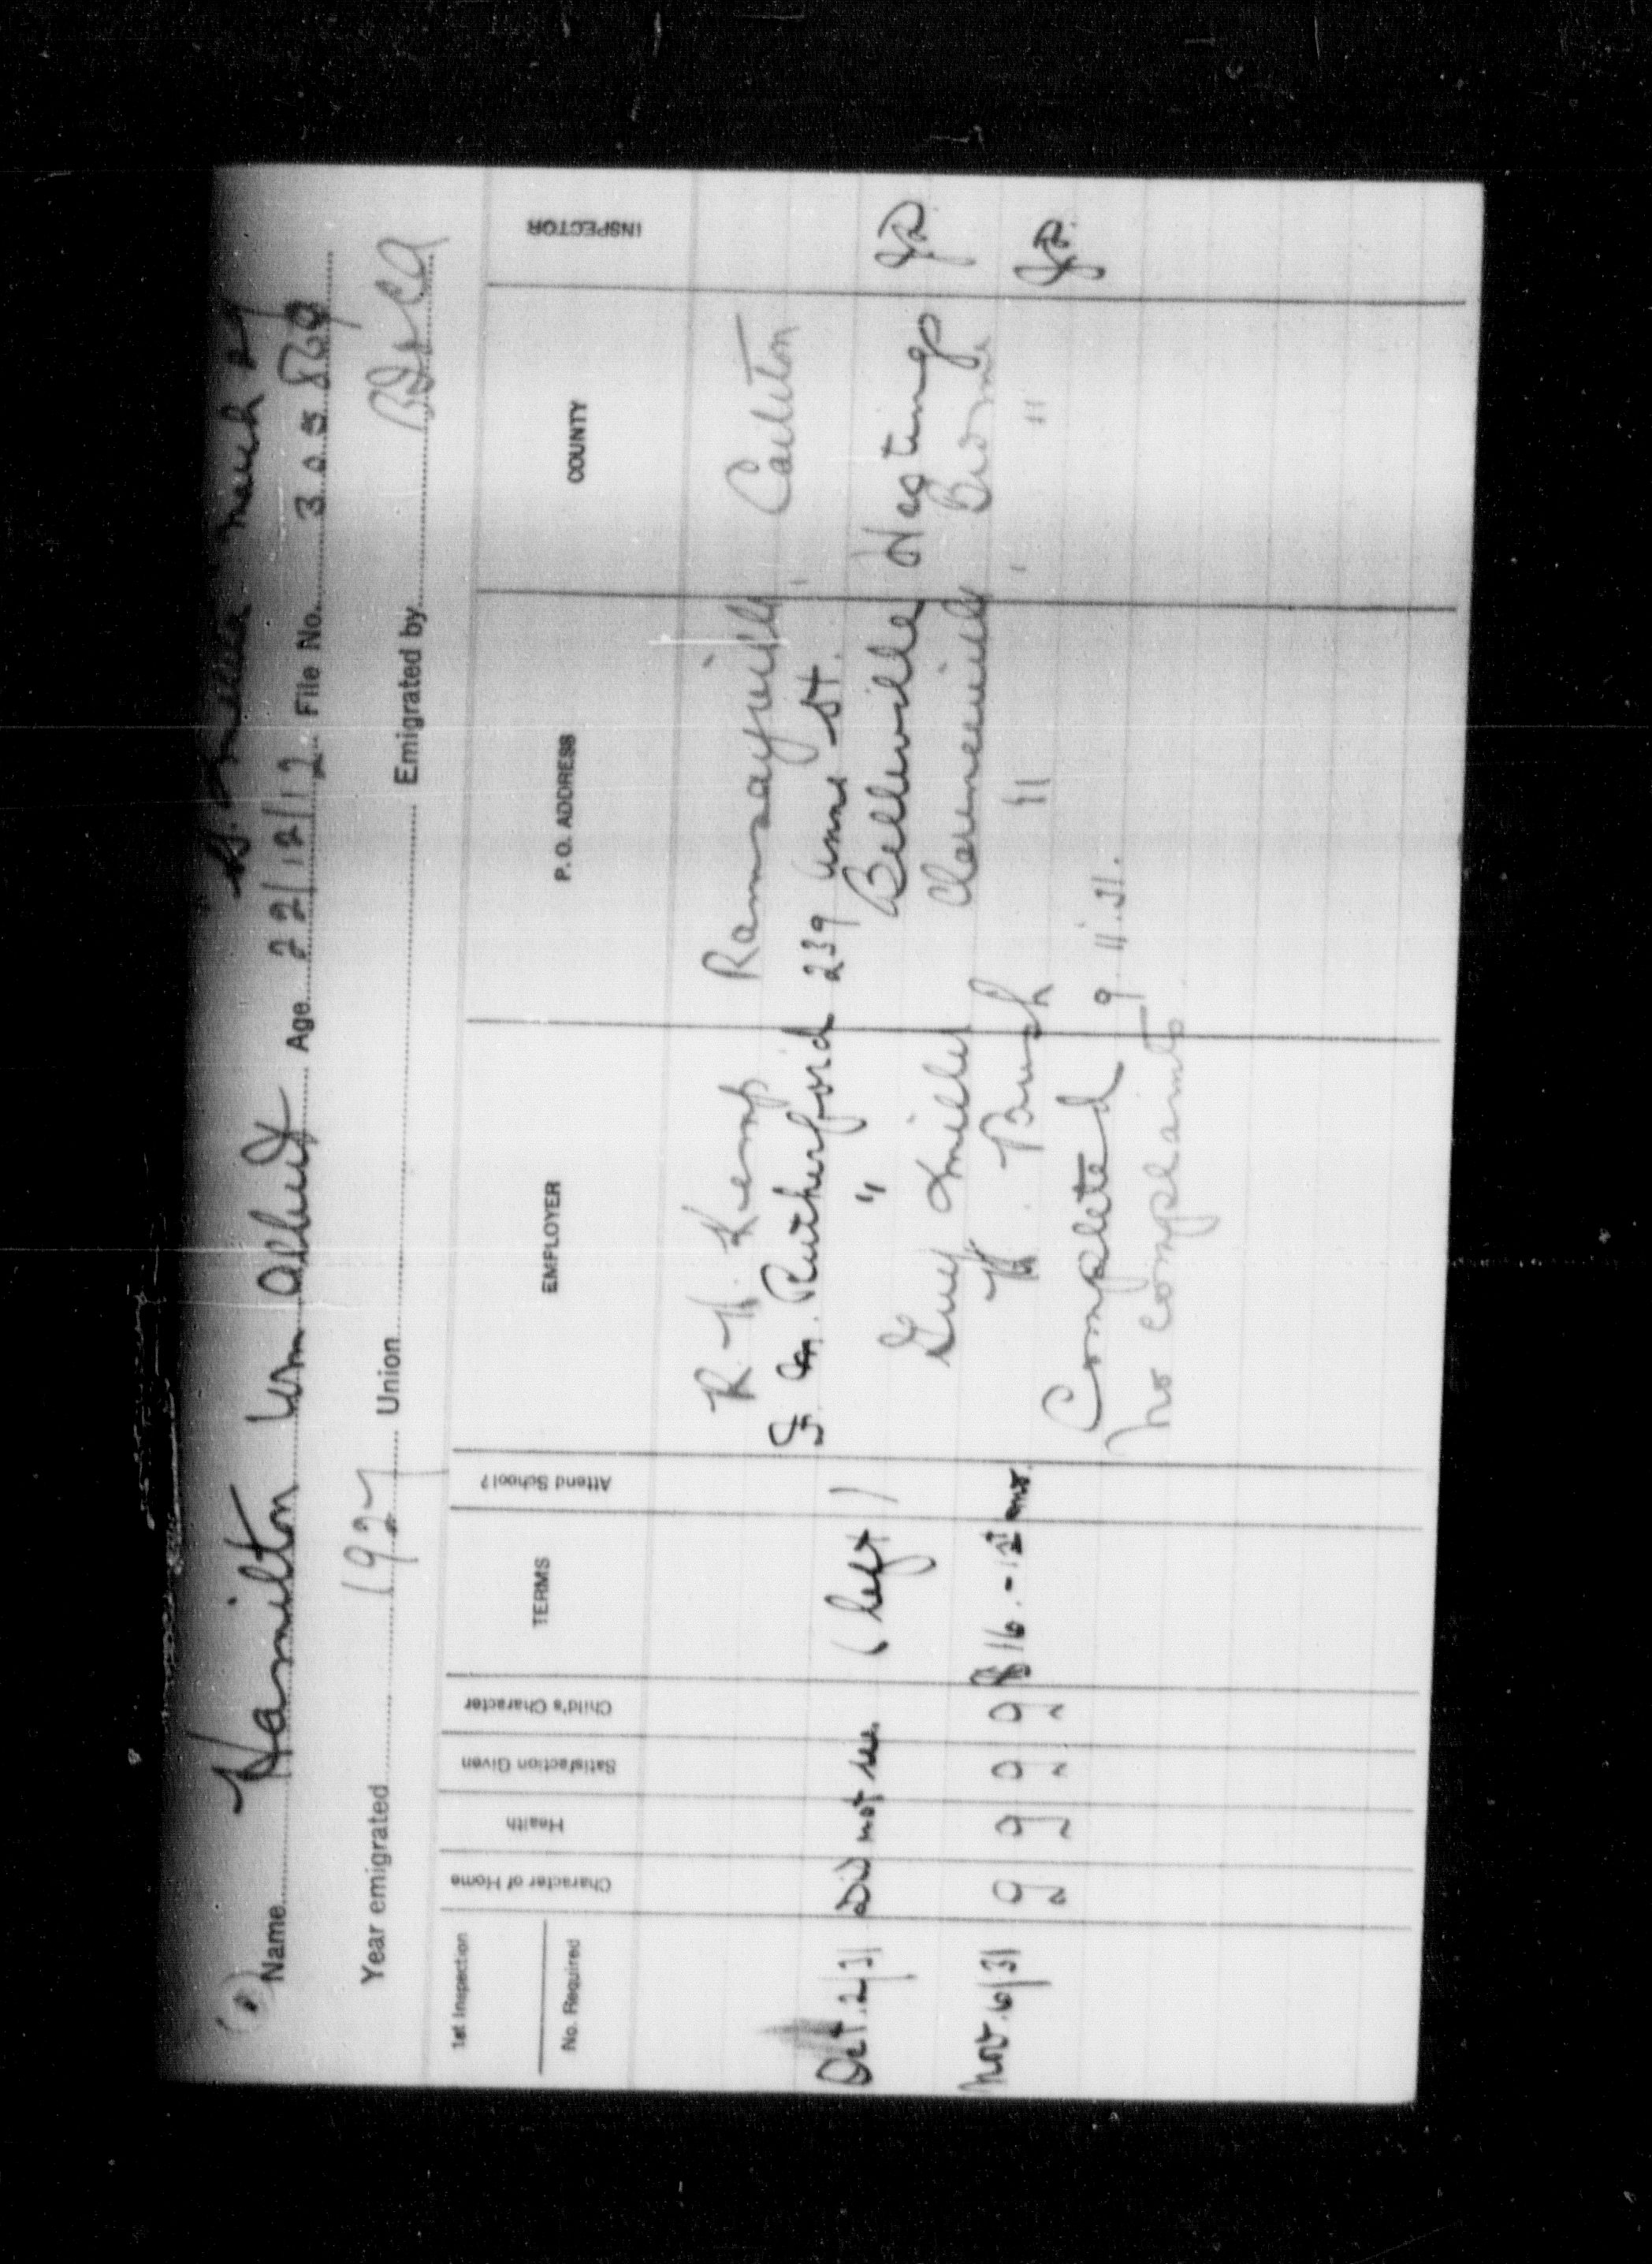 March 27
(P) Name Hamilton Wm Albert Age 22/12/12 File No. 305869
Year emigrated 1927 Union Emigrated by
1st Inspection
No. Required
Character of Home Health Satisfaction Given Child's Character TERMS Attend School? EMPLOYER P.O. ADDRESS COUNTY INSPECTOR
R. H. Kemp Ramsayville Carleton
Rutherford 239 Anne St.
Oct. 2/31 Did not see. (left) " Belleville Hastings
Guy Miller Clarenceville Brome
Nov. 6/31 g g g g $16. - H. Bush " "
Completed 9.11.31.
No complaints